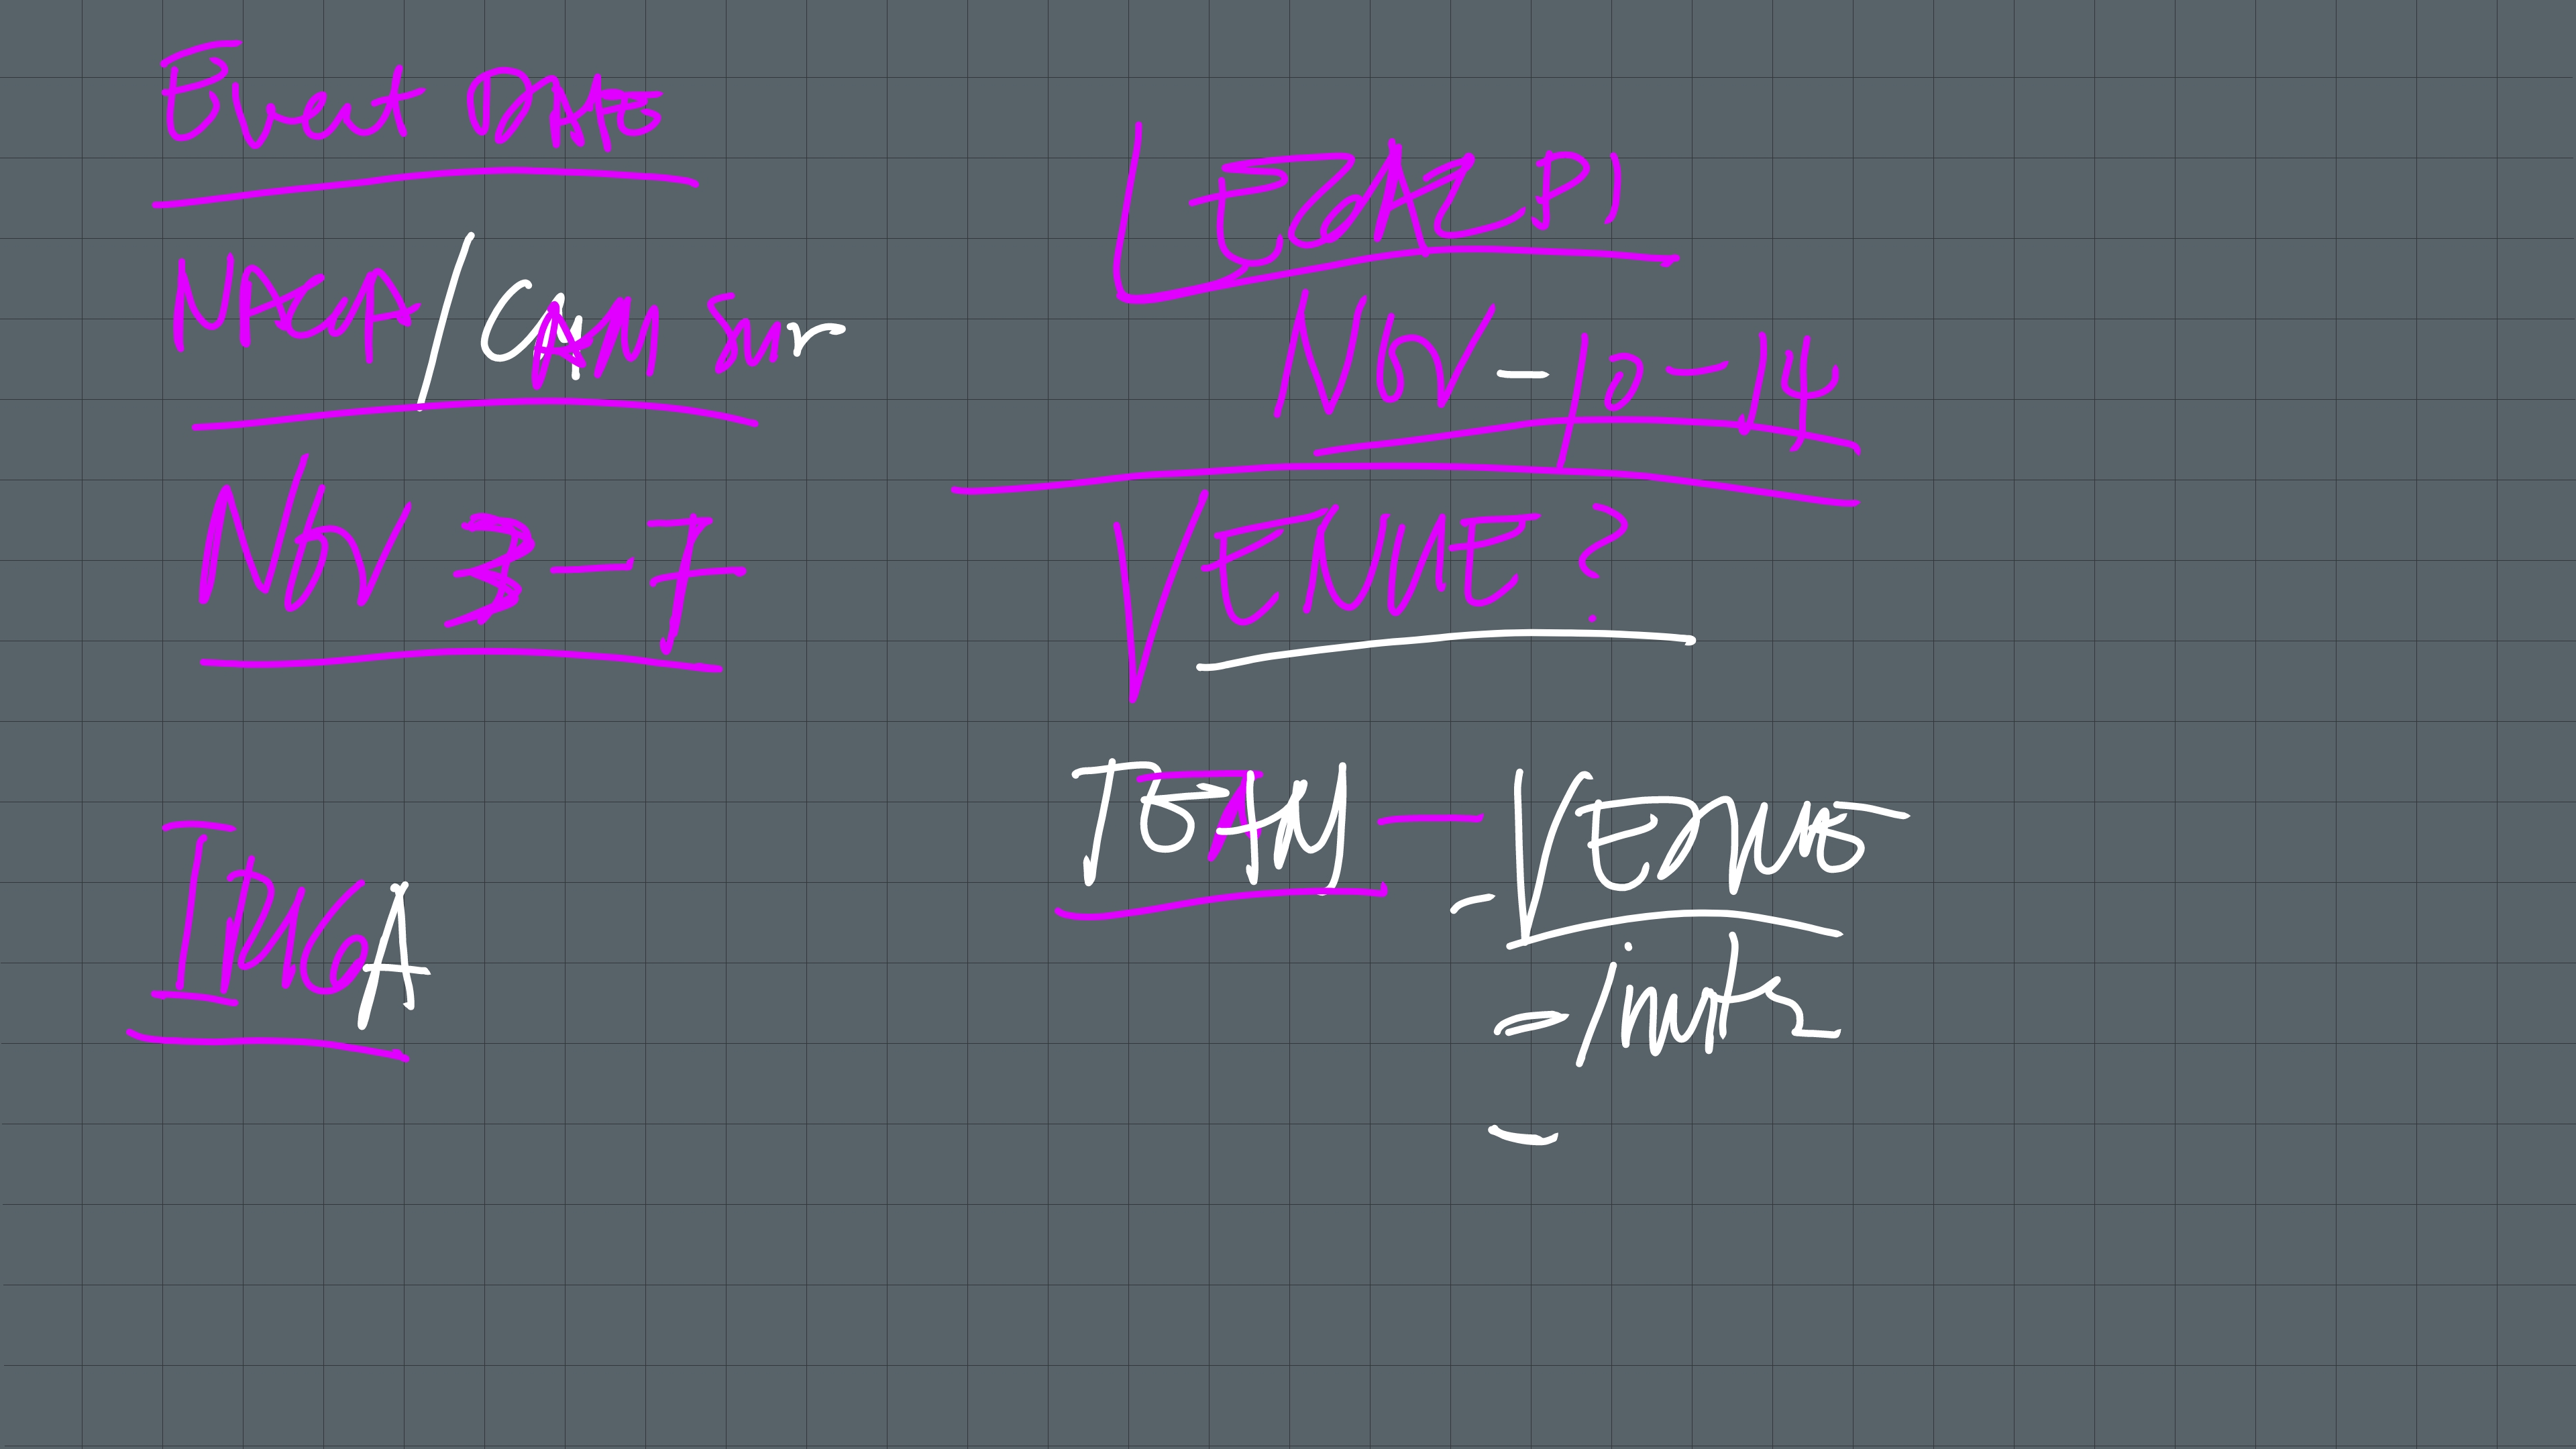 Event DATE
NAGA/CAM Sur
Nov 3-7
IRIGA
LEGAZPI
Nov - 10-14
VENUE?
TEAM - VENUE
- invite